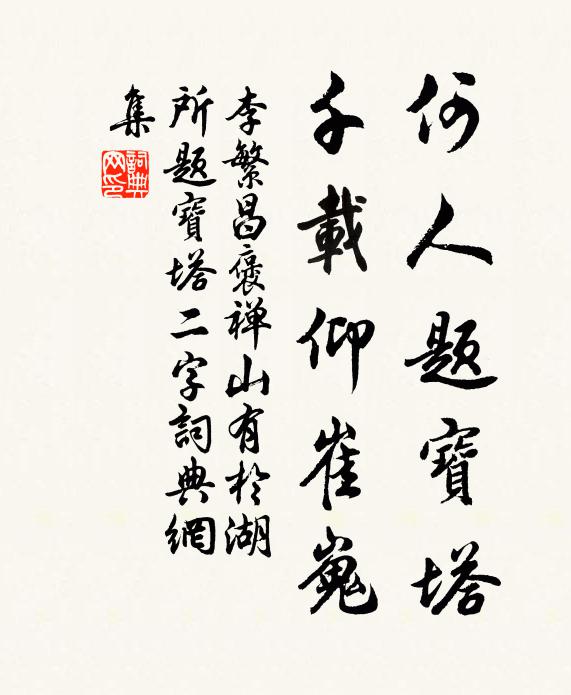 何人題寶塔
千載仰崔嵬
李繁昌褒禅山有於湖
所题寶塔二字詞典網
集
詞典
网印